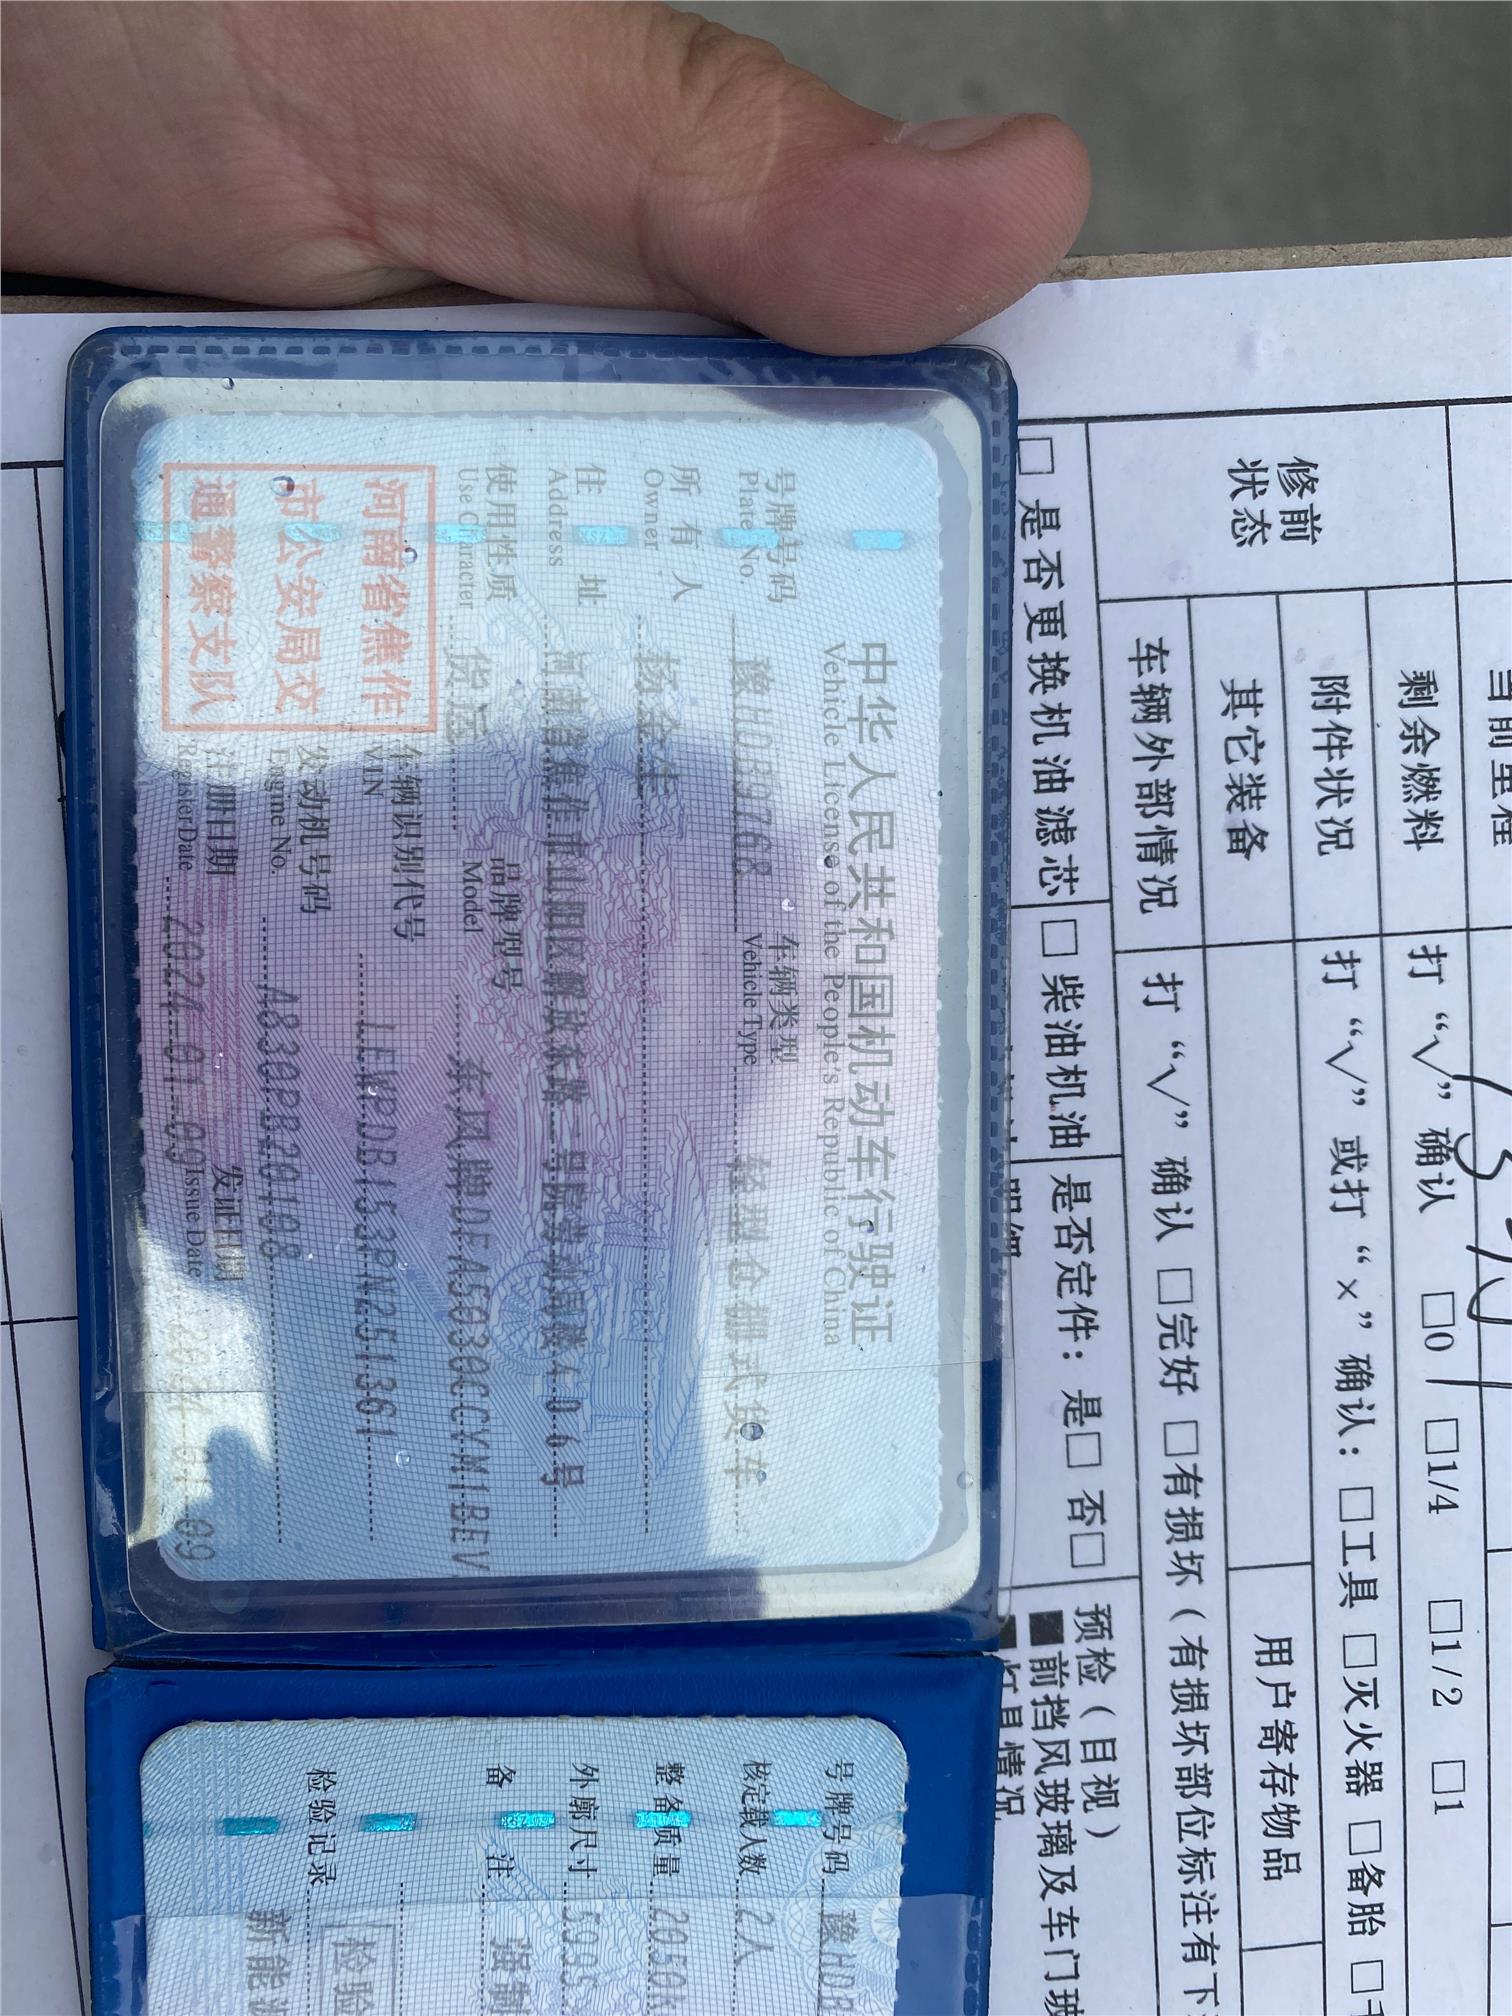 中华人民共和国机动车行驶证
Vehicle License of the People's Republic of China
号牌号码
Plate No.
车辆类型
Vehicle Type
轻型仓栅式货车
所有人
Owner
住址
Address
河南省焦作市山阳区解放东路二号院劳动局楼406号
使用性质
Use Character
货运
品牌型号
Model
东风牌DFA5030CCYM1BEV
河南省焦作
市公安局交
通警察支队
车辆识别代号
VIN
LEWPDB153PN251361
发动机号码
Engine No.
A830PB20188
注册日期
Register Date
2024-01-09
发证日期
Issue Date
2024-01-09
号牌号码
豫HDB
核定载人数
2人
整备质量
2050K
外廓尺寸
5995
备注
强制
检验记录
检验
新能源
当前里程
修前
状态
剩余燃料
打“√”确认
□0 □1/4 □1/2 □1
附件状况
打“√”或打“×”确认：□工具 □灭火器 □备胎
其它装备
用户寄存物品
车辆外部情况
打“√”确认 □完好 □有损坏（有损坏部位标注有下
□是否更换机油滤芯
□柴油机油
是否定件：是□ 否□
预检（目视）
■前挡风玻璃及车门玻